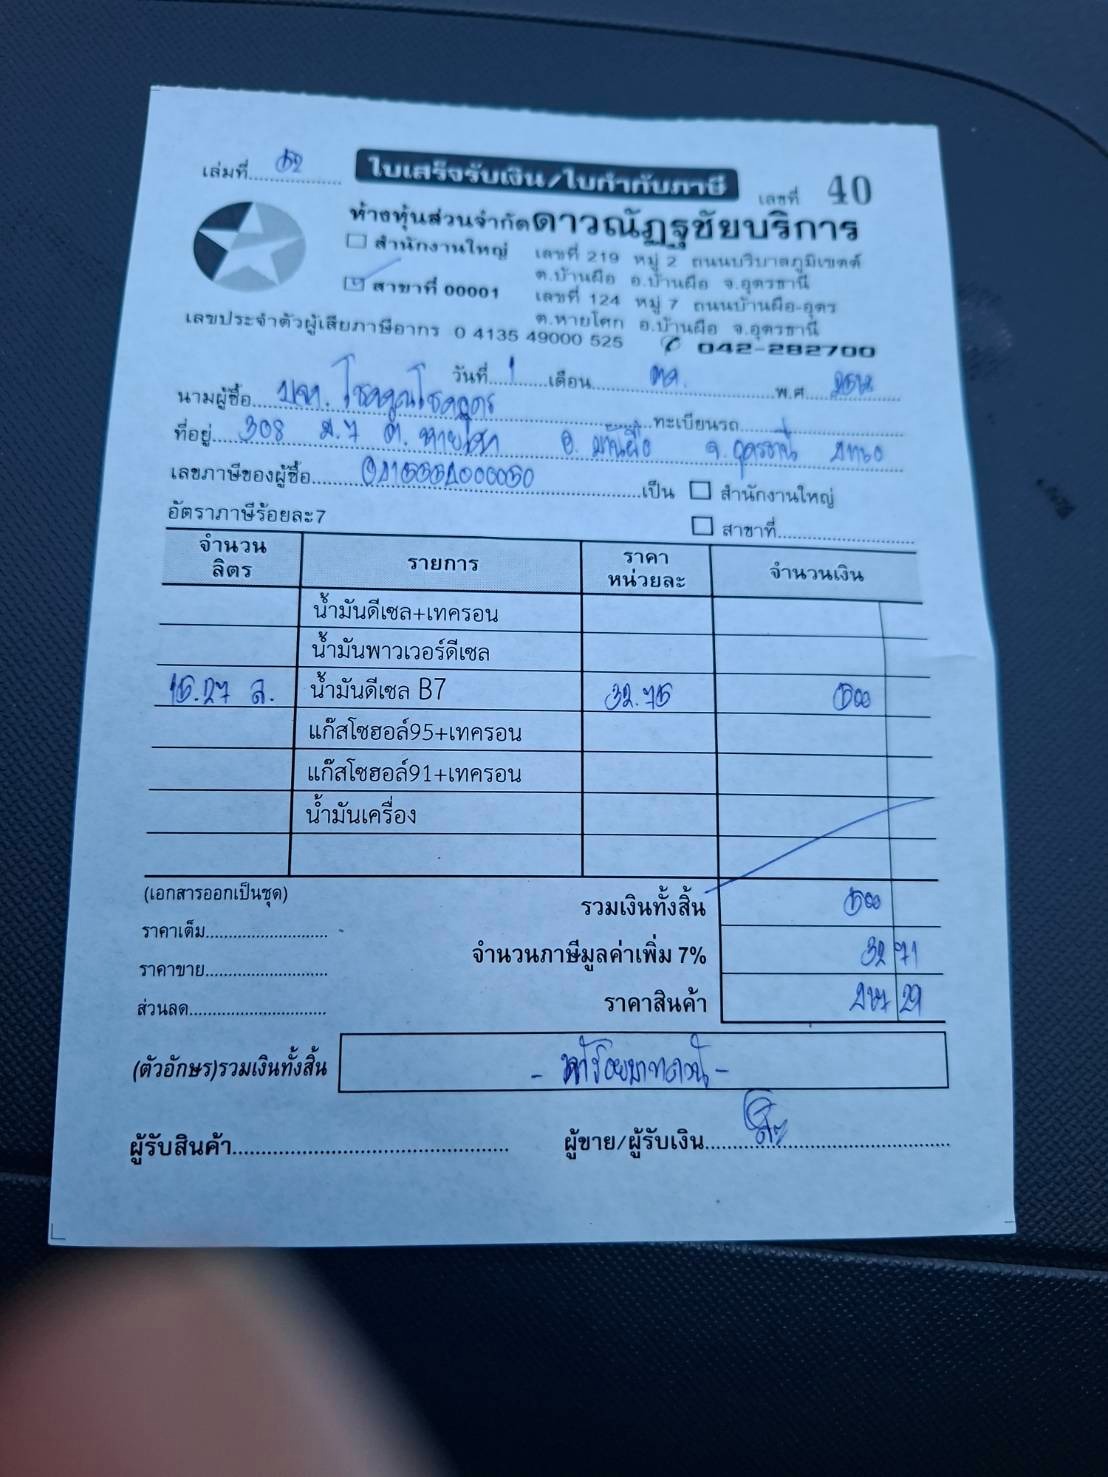 เล่มที่ 52 ใบเสร็จรับเงิน/ใบกำกับภาษี เลขที่ 40
ห้างหุ้นส่วนจำกัดดาวณัฏฐชัยบริการ
สำนักงานใหญ่ เลขที่ 219 หมู่ 2 ถนนบริบาลภูมิเขตต์
ต.บ้านผือ อ.บ้านผือ จ.อุดรธานี
สาขาที่ 00001 เลขที่ 124 หมู่ 7 ถนนบ้านผือ-อุดร
ต.หายโศก อ.บ้านผือ จ.อุดรธานี
เลขประจำตัวผู้เสียภาษีอากร 0 4135 49000 525 042-282700
วันที่ 1 เดือน ตค. พ.ศ. 2568
นามผู้ซื้อ บจก. ทะเบียนรถ
ที่อยู่ 308 ม.7 ต. หายโศก อ. บ้านผือ จ. อุดรธานี
เลขภาษีของผู้ซื้อ เป็น สำนักงานใหญ่
อัตราภาษีร้อยละ7 สาขาที่
จำนวนลิตร รายการ ราคาหน่วยละ จำนวนเงิน
น้ำมันดีเซล+เทครอน
น้ำมันพาวเวอร์ดีเซล
15.27 ล. น้ำมันดีเซล B7 32.75 500
แก๊สโซฮอล์95+เทครอน
แก๊สโซฮอล์91+เทครอน
น้ำมันเครื่อง
(เอกสารออกเป็นชุด) รวมเงินทั้งสิ้น 500
ราคาเต็ม จำนวนภาษีมูลค่าเพิ่ม 7% 32 71
ราคาขาย
ส่วนลด ราคาสินค้า 467 29
(ตัวอักษร)รวมเงินทั้งสิ้น - ห้าร้อยบาทถวน้ -
ผู้รับสินค้า ผู้ขาย/ผู้รับเงิน